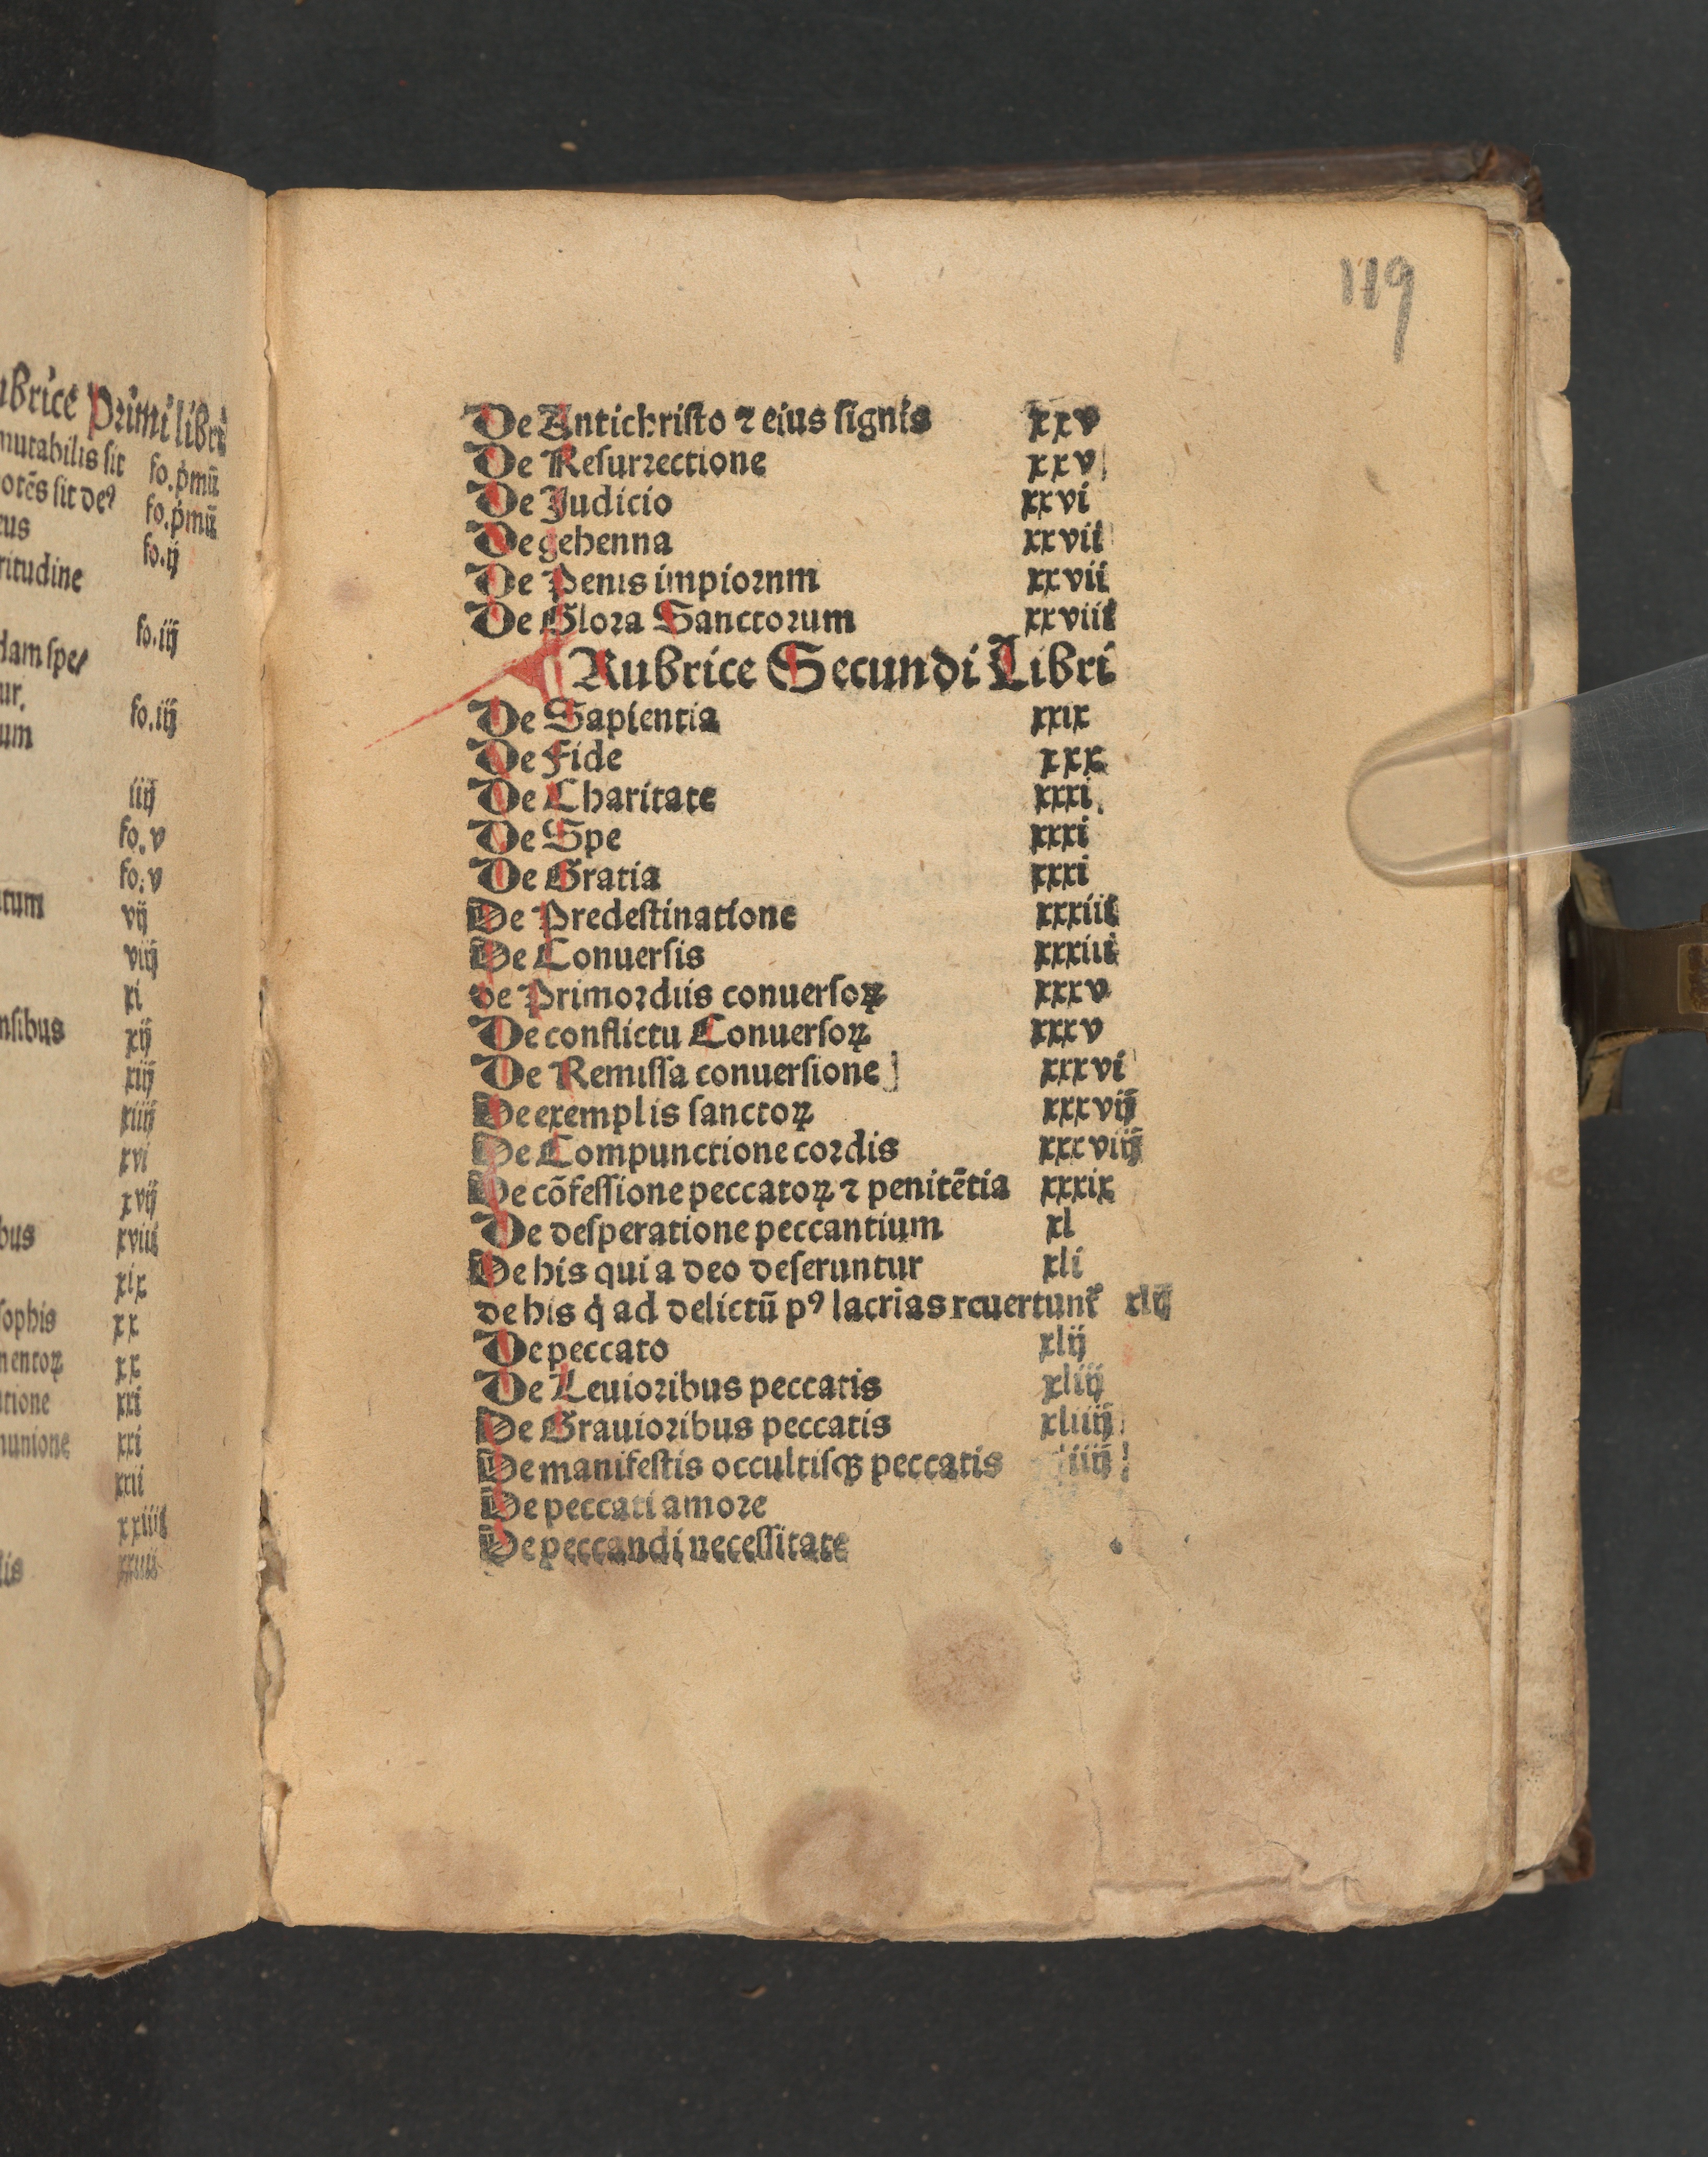 ubrice Primi libri
mutabilis sit fo.p̍mū
otēs sit deꝰ fo.p̍mū
eus fo.ij
ritudine
fo.iij
dam spe/
ur.
um fo.iij
iiij
fo.v
fo.v
tum vij
viij
xi
nsibus xij
xiij
xiiij
xvi
xvij
bus xviii
xix
sophis xx
mentoꝝ xx
atione xxi
munione xxi
xxii
xxiiii
lis
119
De Antichristo ⁊ eius signis xxv
De Resurrectione xxv
De Judicio xxvi
De gehenna xxvii
De Penis impiornm xxvii
De Glora Sanctorum xxviii
¶ Rubrice Secundi Libri
De Sapientia xxix
De Fide xxx
De Charitate xxxi.
De Spe xxxi
De Gratia xxxi
De Predestinatione xxxiii
De Conuersis xxxiii
de Primordiis conuersoꝝ xxxv
De conflictu Conuersoꝝ xxxv
De Remissa conuersione] xxxvi
De exemplis sanctoꝝ xxxvij
De Compunctione cordis xxxviij
De cōfessione peccatoꝝ ⁊ penitētia xxxix
De desperatione peccantium xl
De his qui a deo deseruntur xli
de his q̍ ad delictū pꝰ lacrias rcuertunt᷑ xlij
De peccato xlij
De Leuioribus peccatis xliij
De Grauioribus peccatis xliiij
De manifestis occultisqꝫ peccatis xliiij
De peccati amore
De peccandi necessitate